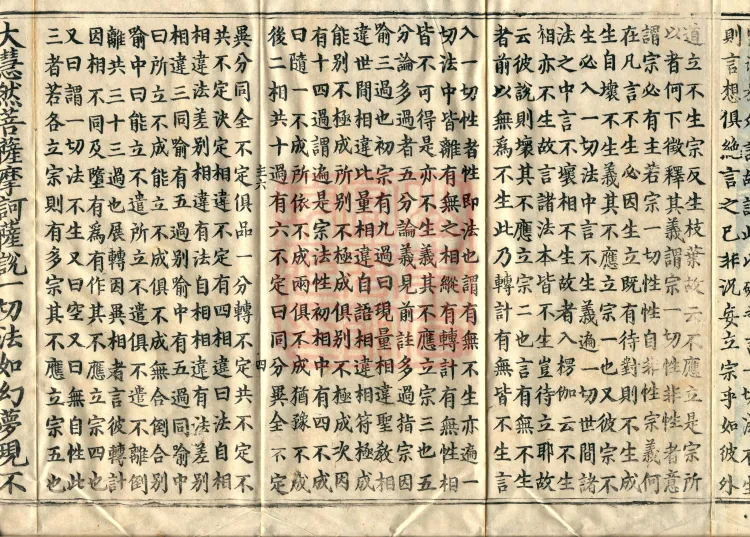 則言想俱絕言之已非况妄立宗乎如彼外
道立不生宗反生枝葉故云不應立是宗所
以者何下徵釋其義謂宗一切性非性者意
謂宗必有主若宗一切性性自非性宗義何
在凡言不生必因生立既有待對則不生成
生自壞不生義其不應立宗一也又彼宗不
生必入一切法中言不生義遍一切世間諸
法之中言不壞相不生故者入楞伽云不生
相亦不生故言諸法本皆不生豈待立耶故
云彼說則壞其不應立宗二也言有無不生
者前以無為不生此乃轉計有無皆不生言
入一切性者性即法也謂有無不生亦遍一
切法中皆離有無之相縱有轉計有無性相
皆不可得是亦不生義其不應立宗三也五
分論多過者五分論義見前註多過指宗因
喻三過也初宗有九過曰現量相違聖教相
違世間相違比量相違自語相違相符極成
能別不極成所別不極成俱別不極成次因
有十四過謂遍是宗法性初相中有四不成
曰隨一不成所依不成兩俱不成猶豫不成
後二相共十過有六不定曰同分異全不定
四
異分同全不定俱品一分轉不定共不定不
共不定決定相違不定有四相違曰法自相
相違法差別相違有法自相相違有法差別
相違三同喻有五過別喻中有五過同喻中
曰所立不成能立不成俱不成無合倒合別
喻中曰能立不遣所立不遣俱不遣不離倒
離共三十三過也展轉因異相者言彼轉計
因相不同及墮有為有作其不應立宗四也
又曰謂一切法不生又曰空又曰無自性此
三者若各立宗則有多宗其不應立宗五也
大慧然菩薩摩訶薩說一切法如幻夢現不